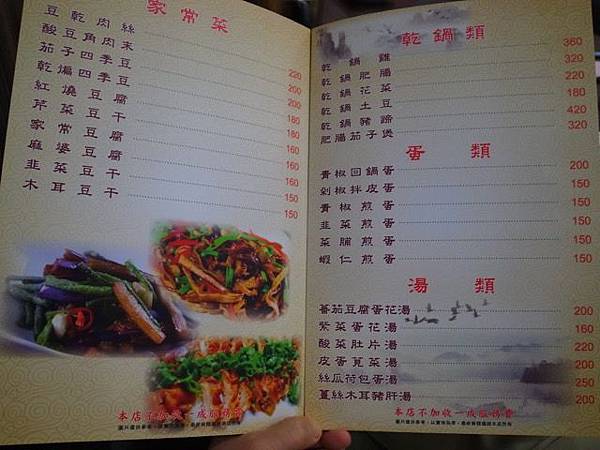 家常菜
豆乾肉絲
酸豆角肉末 220
茄子四季豆 200
乾煸四季豆 200
紅燒豆腐 180
芹菜豆干 180
家常豆腐 160
麻婆豆腐 160
韭菜豆干 150
木耳豆干 150
本店不加收一成服務費
圖片僅供參考
乾鍋類
乾鍋雞 360
乾鍋肥腸 320
乾鍋花菜 220
乾鍋土豆 180
乾鍋豬蹄 420
肥腸茄子煲 320
蛋類
青椒回鍋蛋 200
剁椒拌皮蛋 150
青椒煎蛋 150
韭菜煎蛋 150
菜脯煎蛋 150
蝦仁煎蛋 150
湯類
蕃茄豆腐蛋花湯 200
紫菜蛋花湯 160
酸菜肚片湯 200
皮蛋莧菜湯 200
絲瓜荷包蛋湯 250
薑絲木耳豬肝湯 200
本店不加收一成服務費
圖片僅供參考